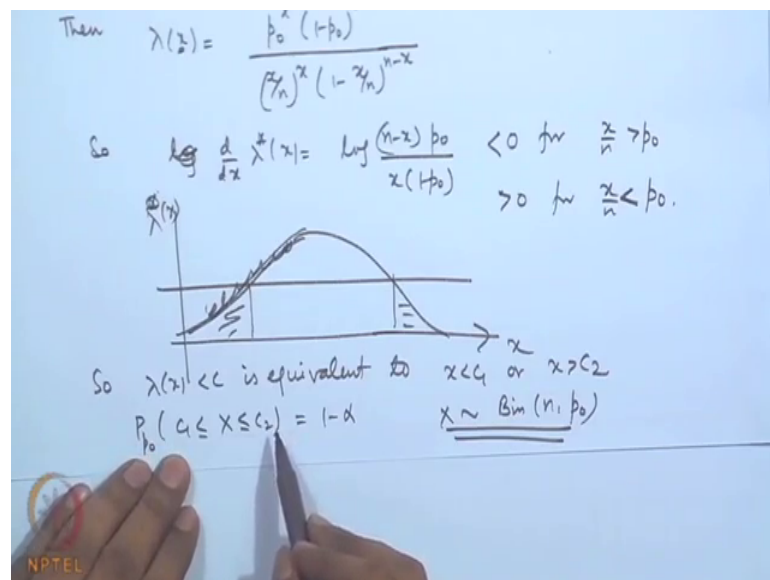 Then λ(x) = p₀ˣ (1-p₀)
(x/n)ˣ (1- x/n)ⁿ⁻ˣ
So d/dx λ*(x) = log (n-x) p₀ / x(1-p₀) <0 for x/n >p₀
>0 for x/n < p₀.
λ(x)
x
So λ(x) < c is equivalent to x<c₁ or x>c₂
P_p₀ ( c₁ ≤ X ≤ c₂) = 1-α X ~ Bin (n, p₀)
NPTEL